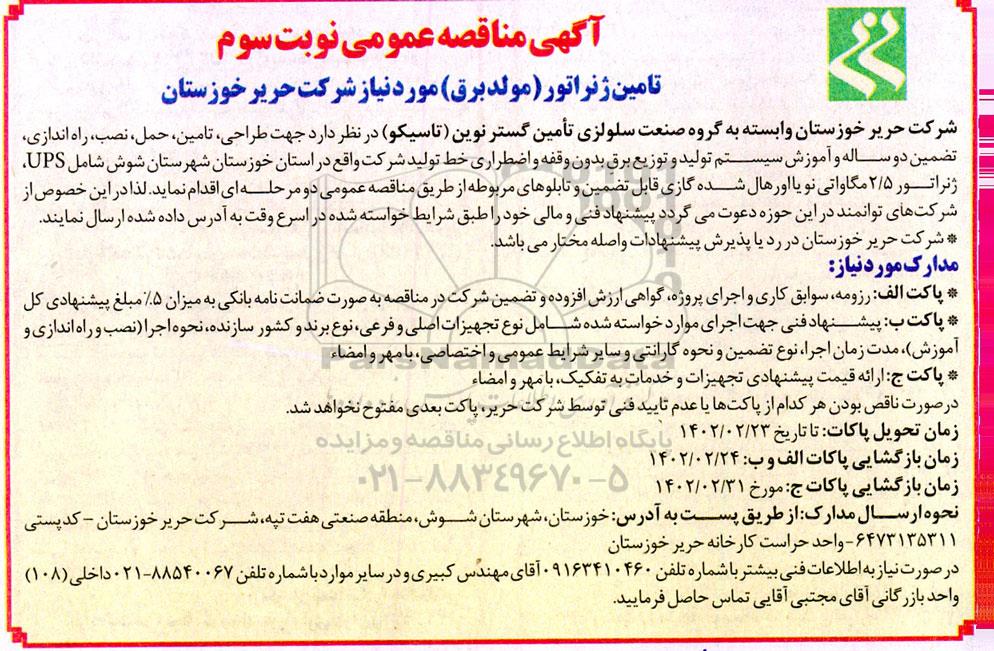 آگهی مناقصه عمومی نوبت سوم
تامین ژنراتور (مولد برق) مورد نیاز شرکت حریر خوزستان
شرکت حریر خوزستان وابسته به گروه صنعت سلولزی تأمین گستر نوین (تاسیکو) در نظر دارد جهت طراحی، تامین، حمل، نصب، راه اندازی،
تضمین دو ساله و آموزش سیستم تولید و توزیع برق بدون وقفه و اضطراری خط تولید شرکت واقع در استان خوزستان شهرستان شوش شامل UPS،
ژنراتور ۲/۵ مگاواتی نو یا اورهال شده گازی قابل تضمین و تابلوهای مربوطه از طریق مناقصه عمومی دو مرحله ای اقدام نماید. لذا در این خصوص از
شرکت‌های توانمند در این حوزه دعوت می گردد پیشنهاد فنی و مالی خود را طبق شرایط خواسته شده در اسرع وقت به آدرس داده شده ارسال نمایند.
* شرکت حریر خوزستان در رد یا پذیرش پیشنهادات واصله مختار می باشد.
مدارک مورد نیاز:
* پاکت الف: رزومه، سوابق کاری و اجرای پروژه، گواهی ارزش افزوده و تضمین شرکت در مناقصه به صورت ضمانت نامه بانکی به میزان ۵٪ مبلغ پیشنهادی کل
* پاکت ب: پیشنهاد فنی جهت اجرای موارد خواسته شده شامل نوع تجهیزات اصلی و فرعی، نوع برند و کشور سازنده، نحوه اجرا (نصب و راه اندازی و
آموزش)، مدت زمان اجرا، نوع تضمین و نحوه گارانتی و سایر شرایط عمومی و اختصاصی، با مهر و امضاء
* پاکت ج: ارائه قیمت پیشنهادی تجهیزات و خدمات به تفکیک، با مهر و امضاء
در صورت ناقص بودن هر کدام از پاکت‌ها یا عدم تایید فنی توسط شرکت حریر، پاکت بعدی مفتوح نخواهد شد.
زمان تحویل پاکات: تا تاریخ ۱۴۰۲/۰۲/۲۳
زمان بازگشایی پاکات الف و ب: ۱۴۰۲/۰۲/۲۴
زمان بازگشایی پاکات ج: مورخ ۱۴۰۲/۰۲/۳۱
نحوه ارسال مدارک: از طریق پست به آدرس: خوزستان، شهرستان شوش، منطقه صنعتی هفت تپه، شرکت حریر خوزستان - کدپستی
۶۴۷۳۱۳۵۳۱۱ - واحد حراست کارخانه حریر خوزستان
در صورت نیاز به اطلاعات فنی بیشتر با شماره تلفن ۰۹۱۶۳۴۱۰۴۶۰ آقای مهندس کبیری و در سایر موارد با شماره تلفن ۸۸۵۴۰۰۶۷-۰۲۱ داخلی (۱۰۸)
واحد بازرگانی آقای مجتبی آقایی تماس حاصل فرمایید.
ParsNamadData
پایگاه اطلاع رسانی مناقصه و مزایده
۰۲۱-۸۸۳۴۹۶۷۰-۵